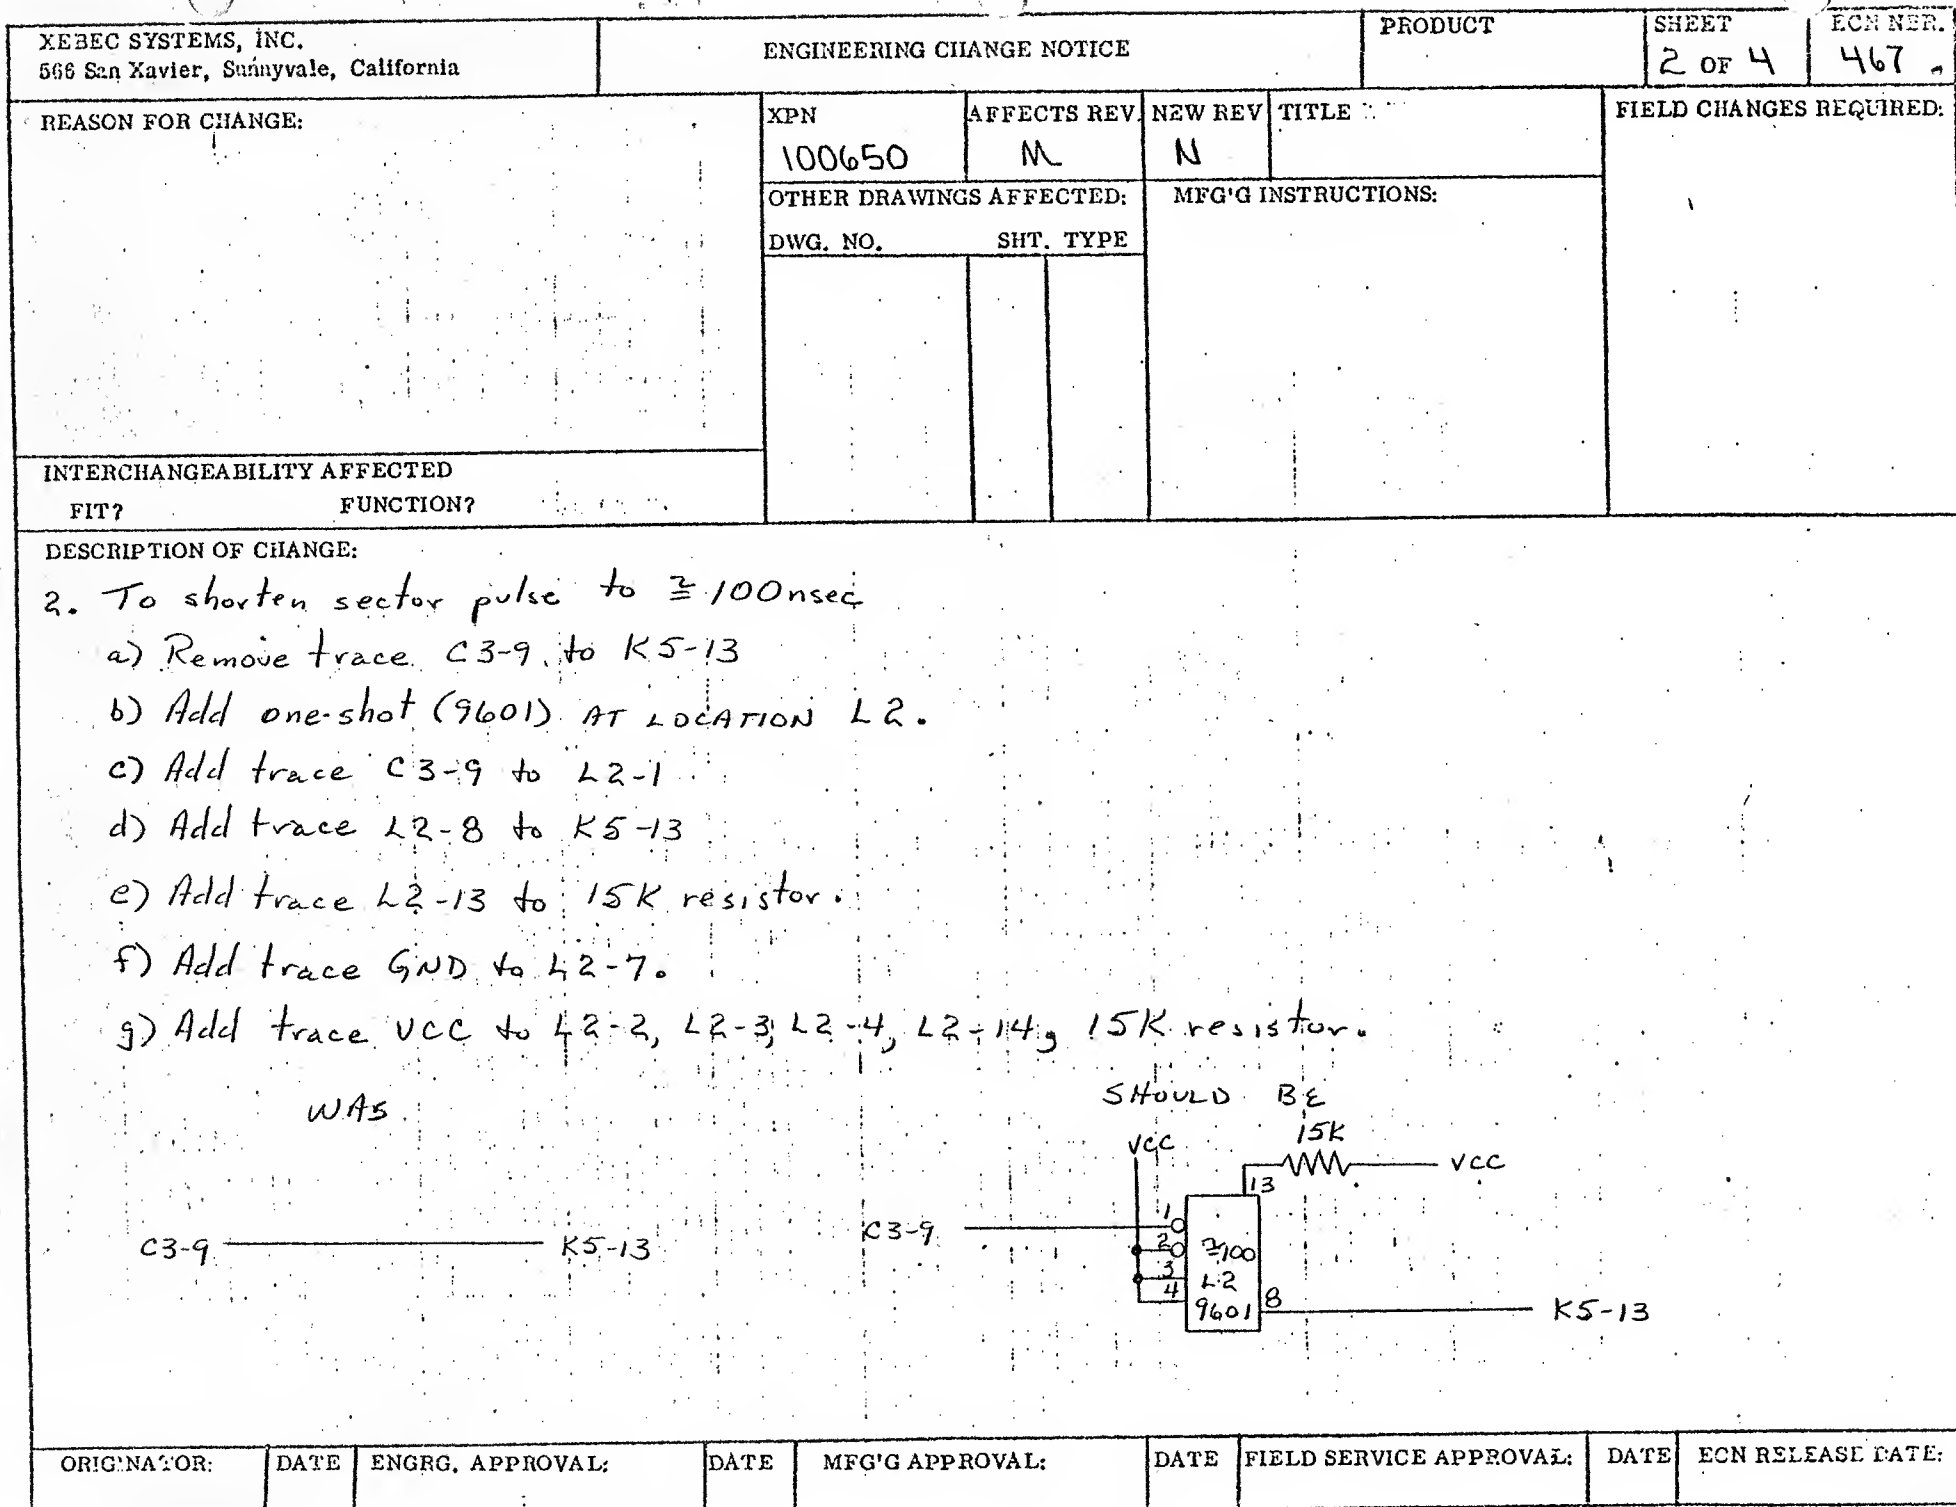 XEBEC SYSTEMS, INC.
566 San Xavier, Sunnyvale, California
ENGINEERING CHANGE NOTICE
PRODUCT
SHEET
2 OF 4
ECN NBR.
467
REASON FOR CHANGE:
XPN
100650
AFFECTS REV.
M
NEW REV
N
TITLE
FIELD CHANGES REQUIRED:
OTHER DRAWINGS AFFECTED:
DWG. NO. SHT. TYPE
MFG'G INSTRUCTIONS:
INTERCHANGEABILITY AFFECTED
FIT? FUNCTION?
DESCRIPTION OF CHANGE:
2. To shorten sector pulse to ≅ 100nsec
a) Remove trace C3-9 to K5-13
b) Add one-shot (9601) AT LOCATION L2.
c) Add trace C3-9 to L2-1
d) Add trace L2-8 to K5-13
e) Add trace L2-13 to 15K resistor.
f) Add trace GND to L2-7.
g) Add trace VCC to L2-2, L2-3, L2-4, L2-14, 15K resistor.
WAS
C3-9 K5-13
SHOULD BE
15K
VCC
VCC
13
1
C3-9
2
≅100
3
L2
4
9601
8
K5-13
ORIGINATOR:
DATE
ENGRG. APPROVAL:
DATE
MFG'G APPROVAL:
DATE
FIELD SERVICE APPROVAL:
DATE
ECN RELEASE DATE: